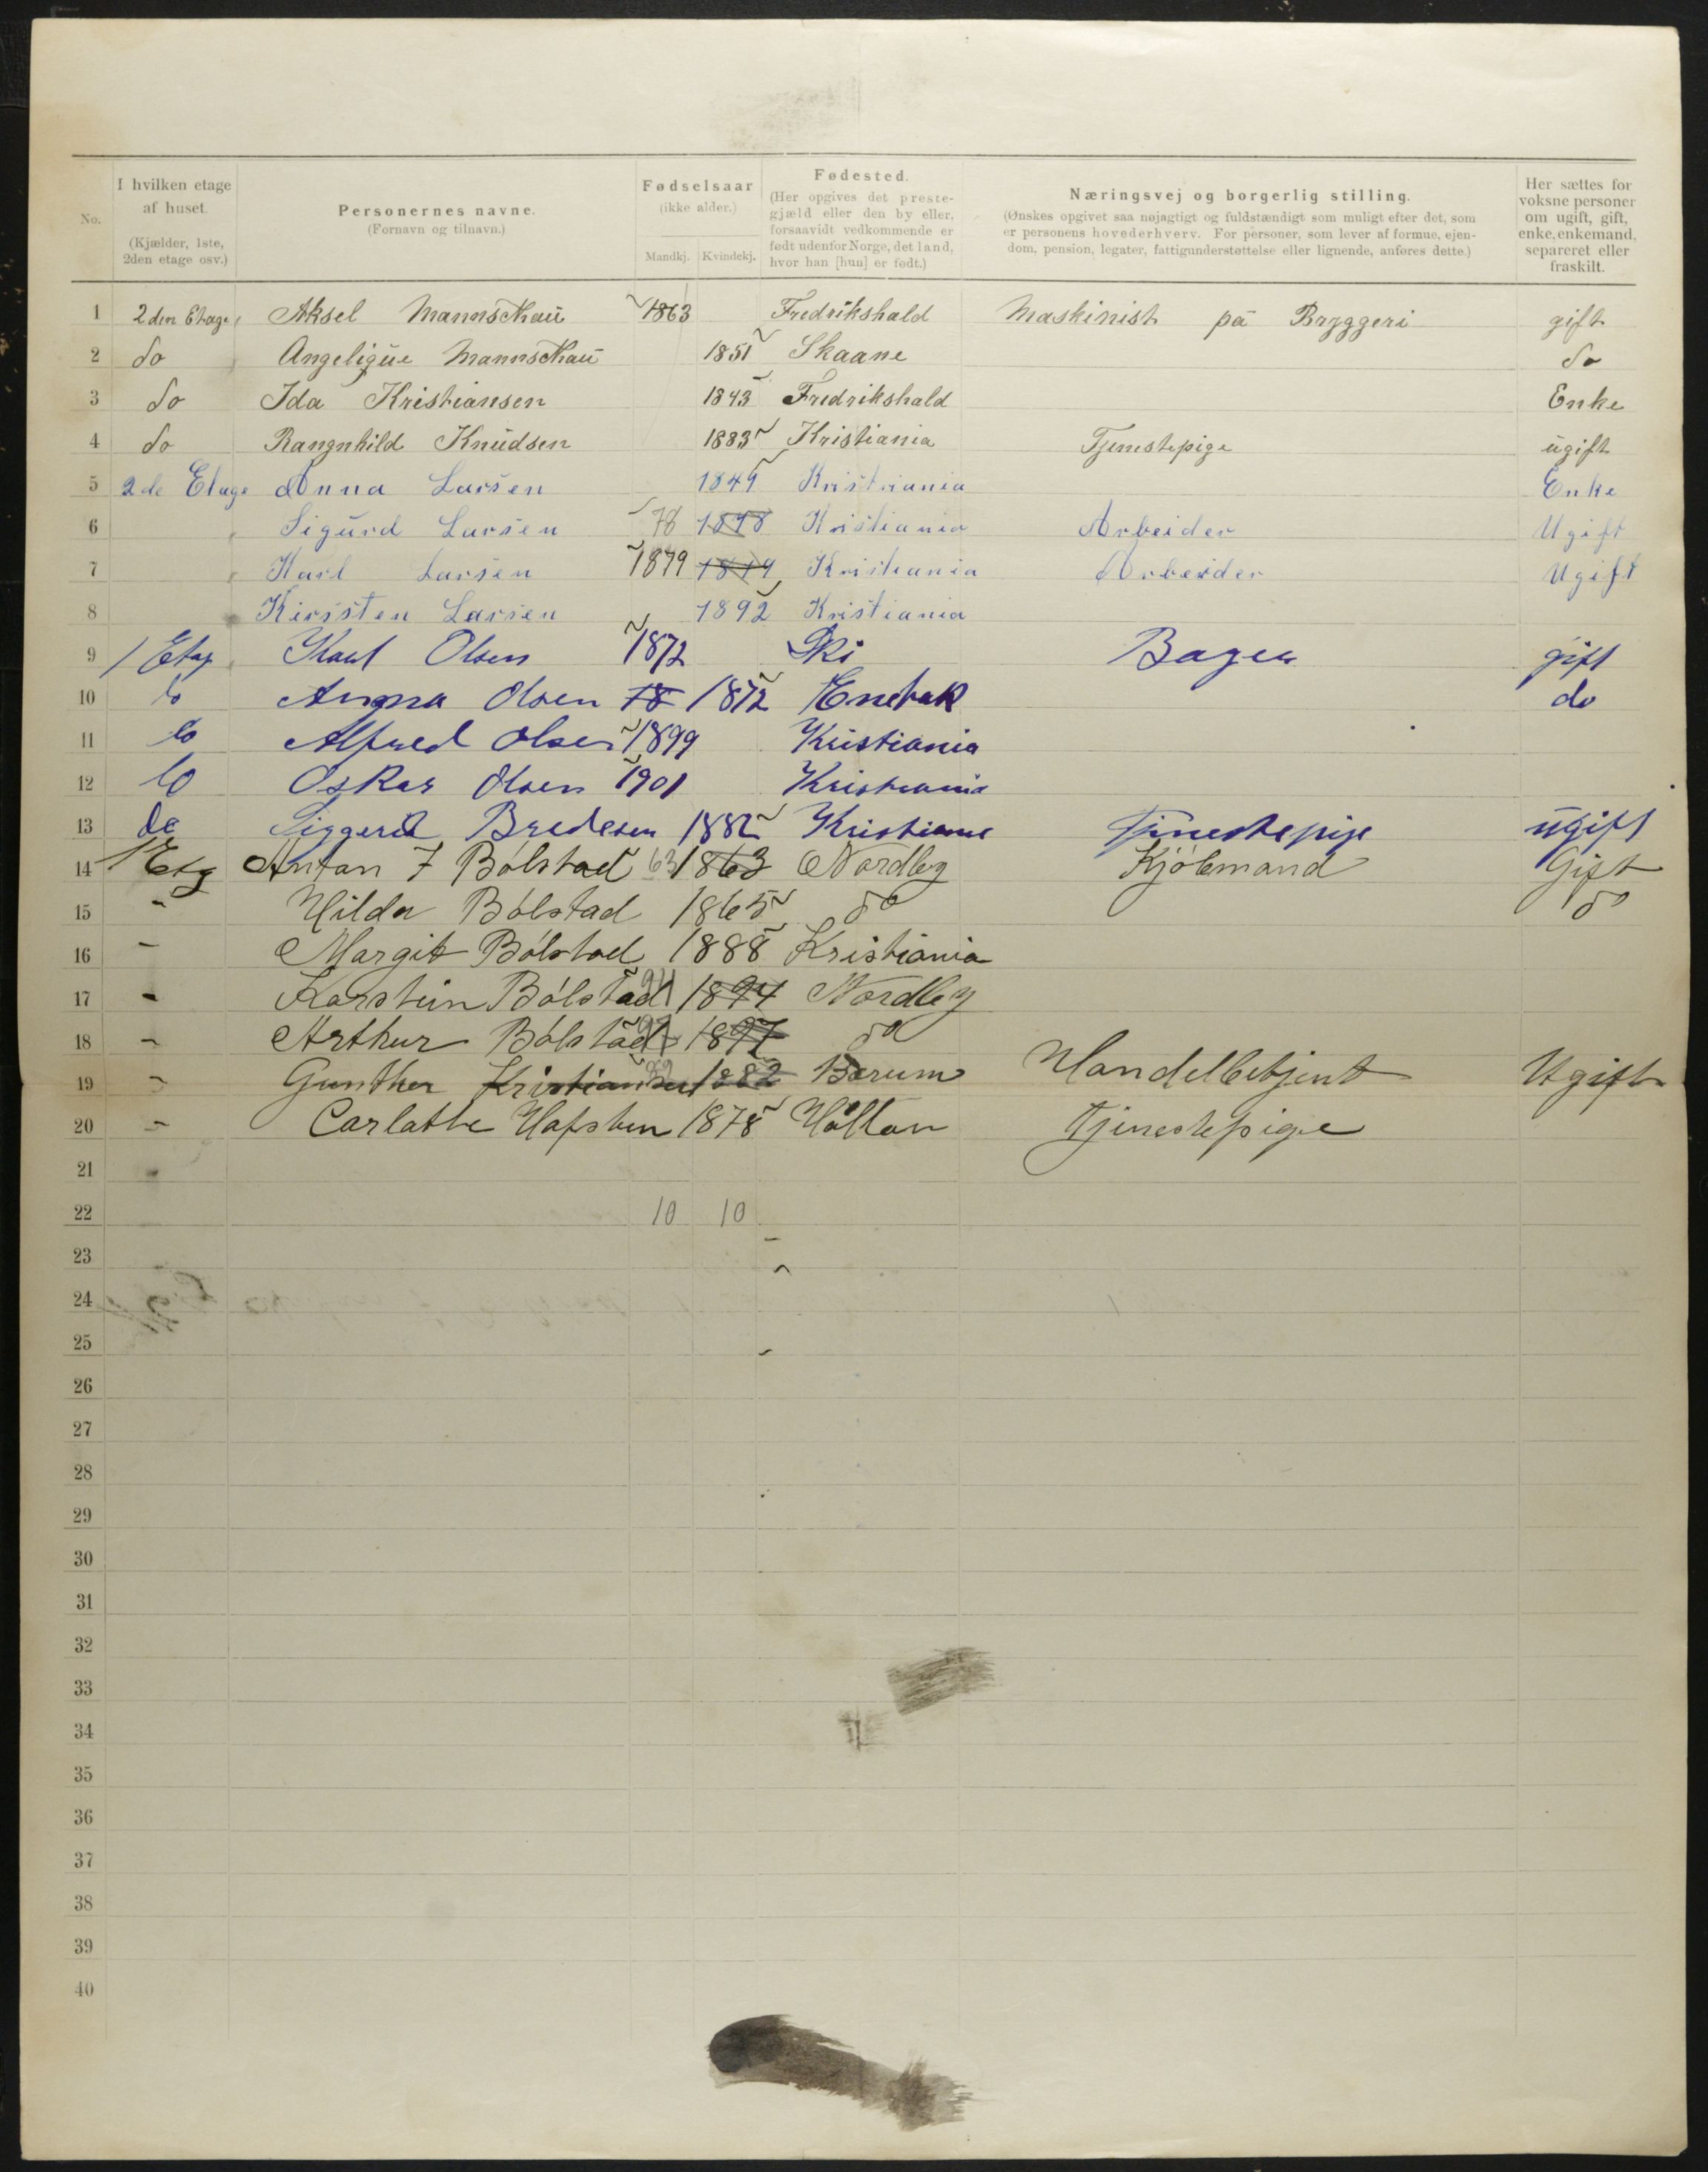 No.
I hvilken etage af huset.
(Kjælder, 1ste, 2den etage osv.)
Personernes navne.
(Fornavn og tilnavn.)
Fødselsaar
(ikke alder.)
Mandkj. Kvindekj.
Fødested.
(Her opgives det prestegjæld eller den by eller, forsaavidt vedkommende er født udenfor Norge, det land, hvor han [hun] er født.)
Næringsvej og borgerlig stilling.
(Ønskes opgivet saa nøjagtigt og fuldstændigt som muligt efter det, som er personens hovederhverv. For personer, som lever af formue, ejendom, pension, legater, fattigunderstøttelse eller lignende, anføres dette.)
Her sættes for voksne personer om ugift, gift, enke, enkemand, separeret eller fraskilt.
1 2den Etage Aksel Mannskau 1863 Fredrikshald Maskinist på Bryggeri gift
2 do Angelique Mannskau 1851 Skaane do
3 do Ida Kristiansen 1843 Fredrikshald Enke
4 do Rangnhild Knudsen 1883 Kristiania Tjenestepige ugift
5 2de Etage Anna Larsen 1849 Kristiania Enke
6 Sigurd Larsen 78 1878 Kristiania Arbeider Ugift
7 Karl Larsen 1879 1879 Kristiania Arbeider Ugift
8 Kirsten Larsen 1892 Kristiania
9 1 Etag Karl Olsen 1872 Ski Bager gift
10 do Anna Olsen 18 1872 Enebak do
11 do Alfred Olsen 1899 Kristiania
12 do Oskar Olsen 1901 Kristiania
13 do Siggerd Bredesen 1882 Kristiania Tjenestepige ugift
14 1 Etg Antan F Bølstad 63 1863 Nordby Kjøbmand Gift
15 " Hilda Bølstad 1865 do do
16 - Margit Bølstad 1888 Kristiania
17 - Karstein Bølstad 94 1894 Nordby
18 - Arthur Bølstad 97 1897 do
19 - Gunther Kristiansen 82 1882 Bærum Handelbetjent Ugift
20 - Carlathe Hafsten 1878 Høltan Tjenestepige
21
22 10 10
23
24
25
26
27
28
29
30
31
32
33
34
35
36
37
38
39
40